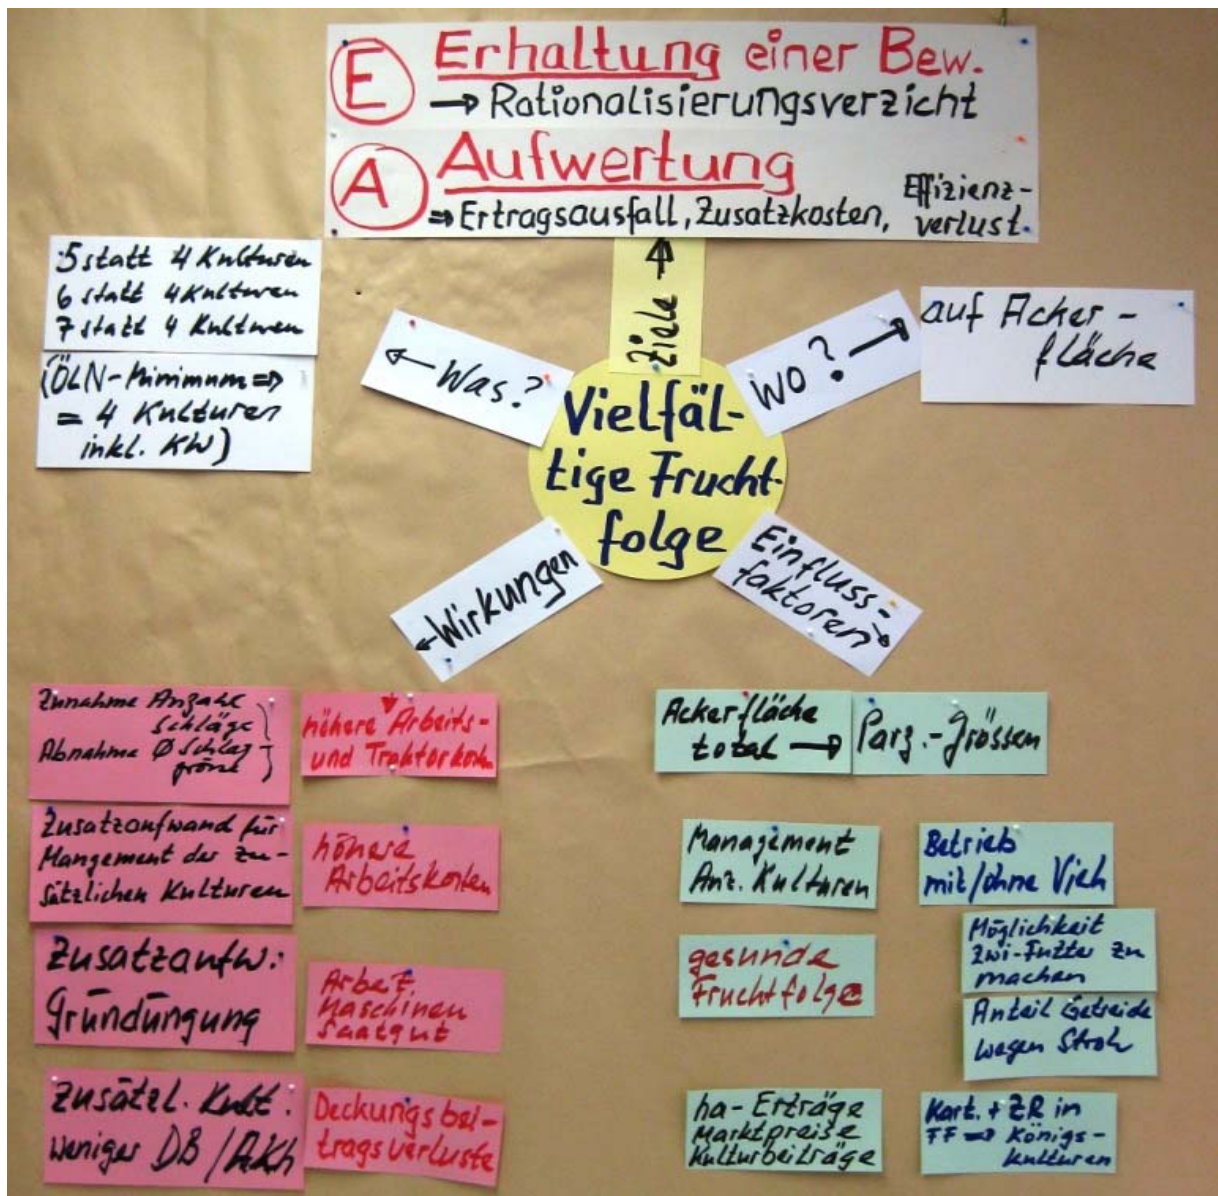 E Erhaltung einer Bew.
→ Rationalisierungsverzicht
A Aufwertung
⇒ Ertragsausfall, Zusatzkosten, Effizienz-
verlust.
5 statt 4 Kulturen
6 statt 4 Kulturen
7 statt 4 Kulturen
(ÖLN-Minimum ⇒
= 4 Kulturen
inkl. KW)
← Was?
Ziele →
Wo? →
auf Acker-
fläche
Vielfäl-
tige Frucht-
folge
← Wirkungen
Einfluss-
faktoren →
Zunahme Anzahl
Schläge
Abnahme Ø Schlag-
grösse
höhere Arbeits-
und Traktorkosten
Zusatzaufwand für
Mangement der zu-
sätzlichen Kulturen
höhere
Arbeitskosten
Zusatzaufw.:
Gründüngung
Arbeit,
Maschinen
Saatgut
Zusätzl. Kult.:
weniger DB/AKh
Deckungsbei-
tragsverluste
Ackerfläche
total →
Parz.-Grössen
Management
Anz. Kulturen
Betrieb
mit/ohne Vieh
gesunde
Fruchtfolge
Möglichkeit
Zwi-Futter zu
machen
Anteil Getreide
wegen Stroh
ha-Erträge
Marktpreise
Kulturbeiträge
Kart. + ZR in
FF ⇒ Königs-
kulturen